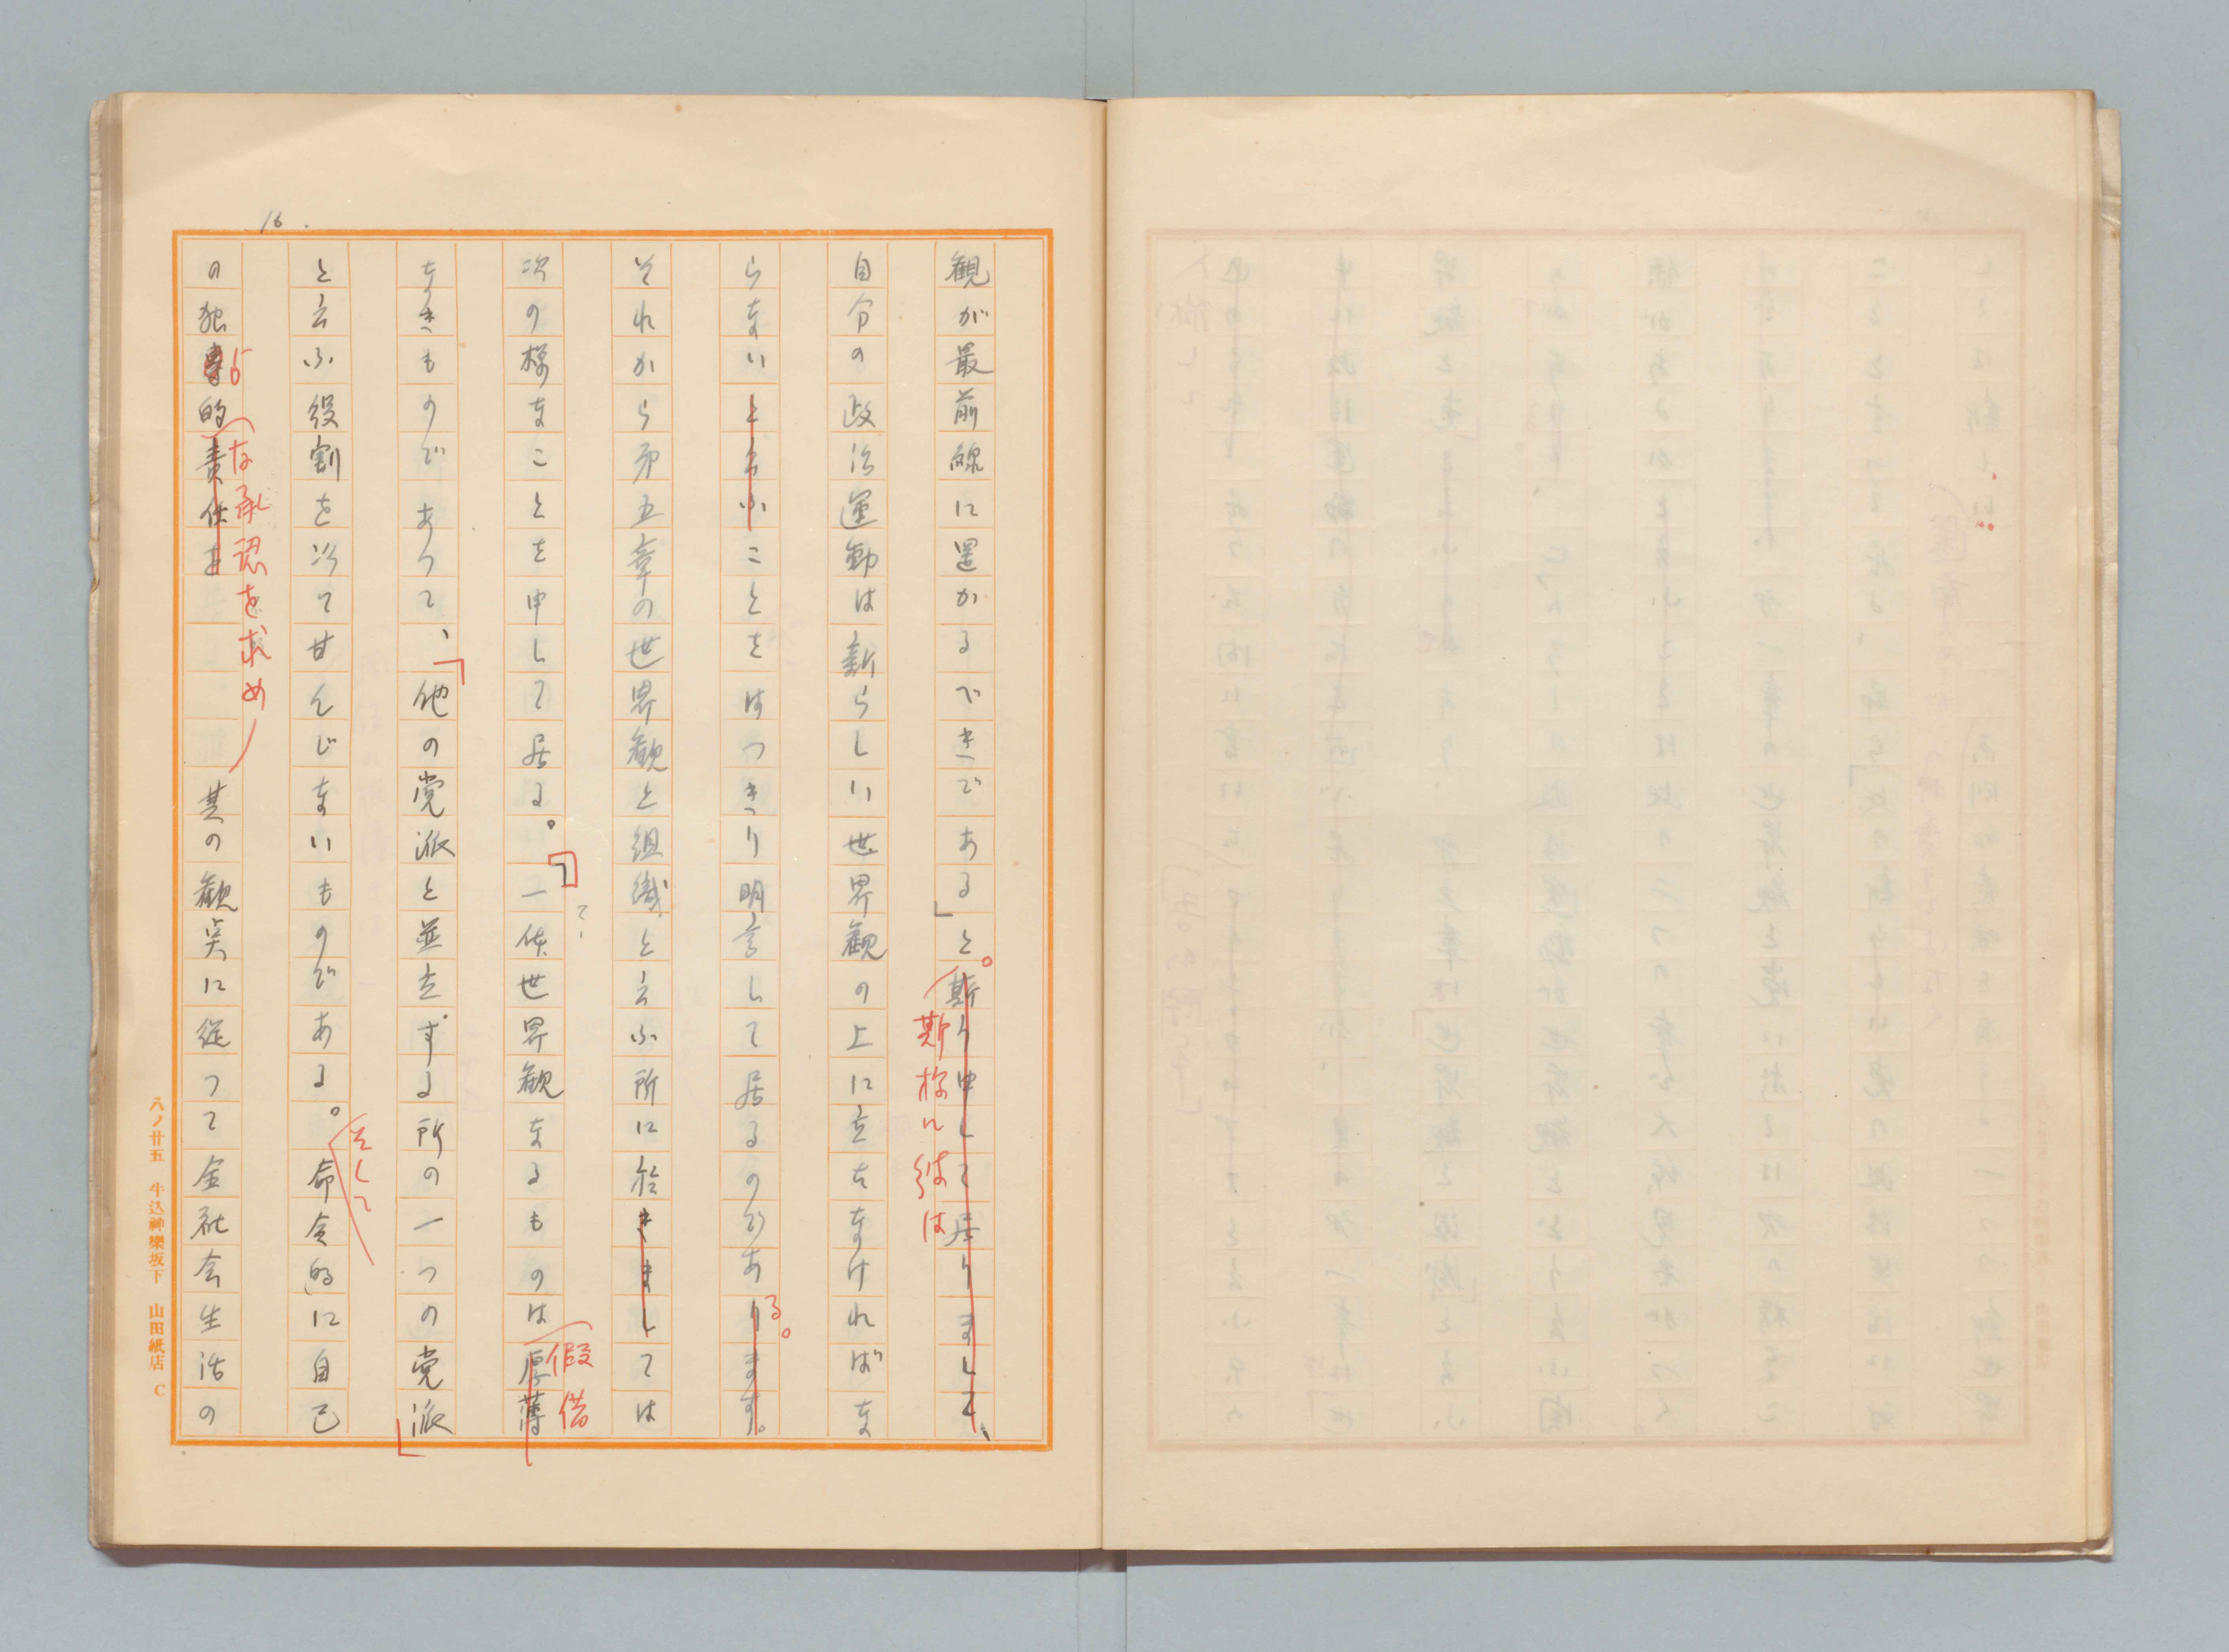 16.
観が最前線に置かるべきである」と。斯く申して居りまして、
斯様に彼は
自分の政治運動は新らしい世界観の上に立たなければな
らないと云ふことをはつきり明言して居るのであります。
る。
それから第五章の世界観と組織と云ふ所に於きましては
次の様なことを申して居る。「一体世界観なるものは厚薄
て
假借
なきものであつて、「他の党派と並立する所の一つの党派」
と云ふ役割を以て甘んじないものである。命令的に自己
そして
の独専的責任を 其の観点に従つて全社会生活の
占
な承認を求め
八ノ廿五 牛込神樂坂下 山田紙店 C